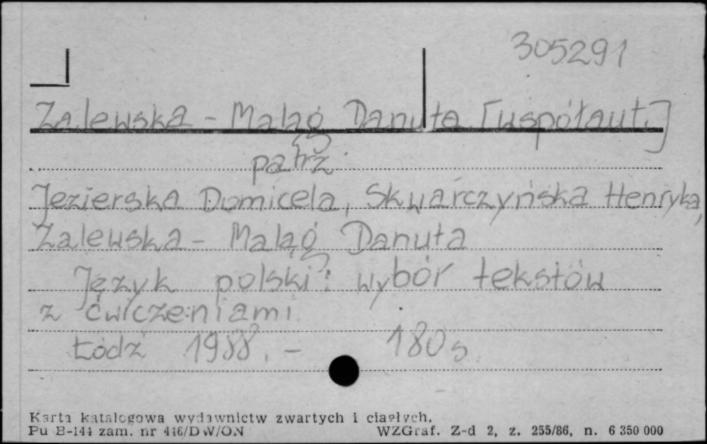 305291
Zalewska - Maląg Danuta [współaut.]
patrz
Jezierska Domicela, Skwarczyńska Henryka,
Zalewska - Maląg Danuta
Język polski : wybór tekstów
z ćwiczeniami
Łódź 1988. - 180 s
Karta katalogowa wydawnictw zwartych i ciągłych.
Pu B-144 zam. nr 416/DW/ON WZGraf. Z-d 2, z. 255/86, n. 6 350 000